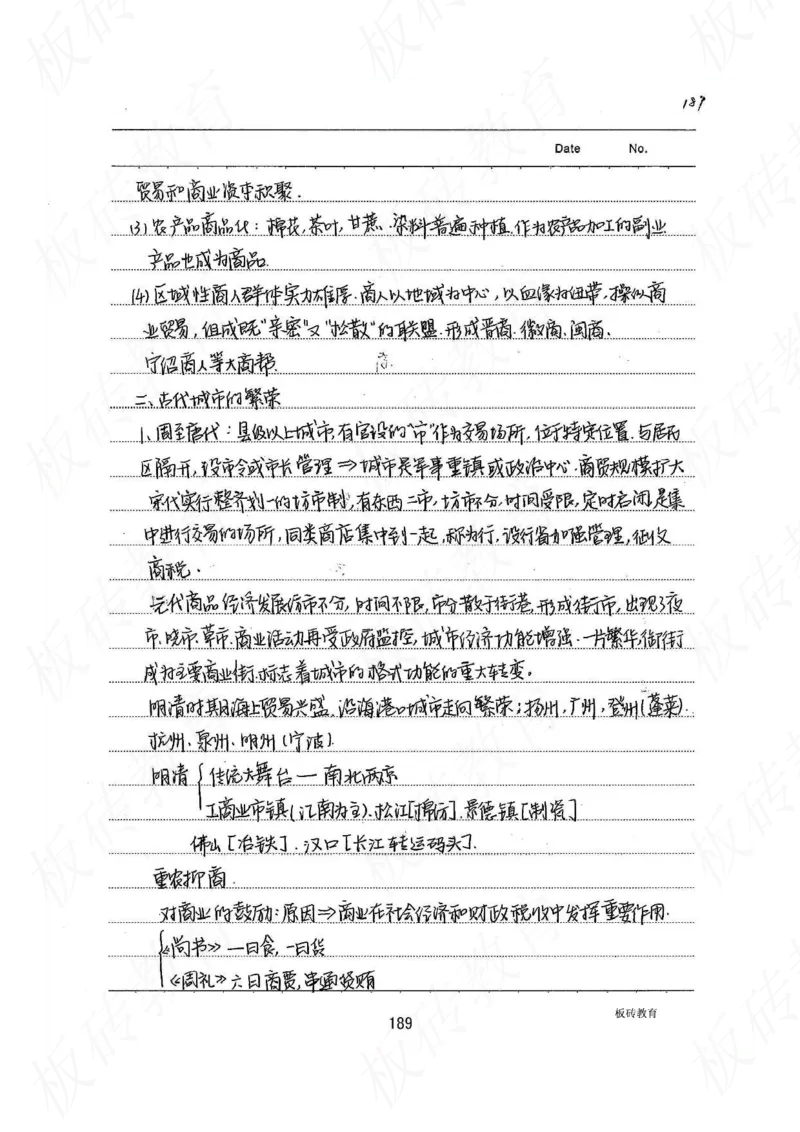 189
Date No.
贸易和商业资本积聚.
(3)农产品商品化：棉花,茶叶,甘蔗.染料普遍种植.作为农产品加工的副业
产品也成为商品.
(4)区域性商人群体实力雄厚.商人以地域为中心,以血缘为纽带,操纵商
业贸易,组成既"亲密"又"松散"的联盟.形成晋商.徽商.闽商.
宁绍商人等大商帮.
二、古代城市的繁荣
1、周至唐代：县级以上城市.有官设的"市"作为交易场所,位于特定位置.与居民
区隔开,设市令或市长管理⇒城市是军事重镇或政治中心.商贸规模扩大
宋代实行整齐划一的坊市制,有东西二市,坊市不分,时间受限,定时启闭,是集
中进行交易的场所,同类商店集中到一起,称为行,设行省加强管理,征收
商税.
元代商品经济发展坊市不分,时间不限,市分散于街巷.形成街市,出现了夜
市.晓市.草市.商业活动再受政府监控,城市经济功能增强.一片繁华,御街
成为主要商业街.标志着城市的格式功能的重大转变。
明清时期海上贸易兴盛.沿海港口城市走向繁荣;扬州,广州,登州(蓬莱).
杭州.泉州.明州(宁波).
明清 传统大舞台—南北两京
工商业市镇(江南为主).松江[棉纺].景德镇[制瓷]
佛山[冶铁].汉口[长江转运码头].
重农抑商.
对商业的鼓励:原因⇒商业在社会经济和财政税收中发挥重要作用.
《尚书》一曰食,一曰货
《周礼》六曰商贾,阜通货贿
189
板砖教育